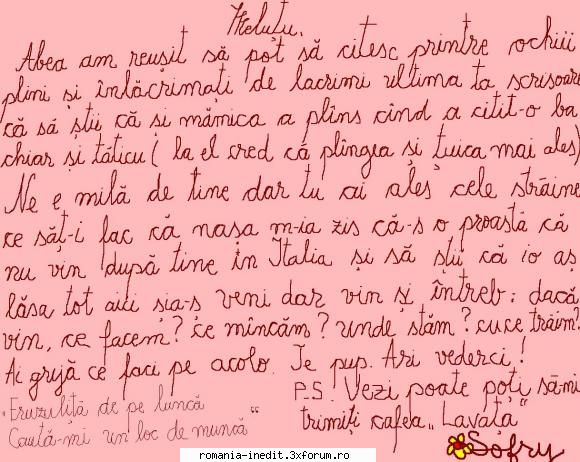 Meluțu,
Abea am reușit să pot să citesc printre ochiii
plini și înlăcrimați de lacrimi ultima ta scrisoare
că să știi că și mămica a plîns cînd a citit-o ba
chiar și tăticu ( la el cred că plîngea și țuica mai ales)
Ne e milă de tine dar tu ai ales cele străine
ce săț-i fac că nașa m-ia zis că-s o proastă că
nu vin după tine în Italia și să știi că io aș
lăsa tot aici șia-ș veni dar vin și întreb: dacă
vin, ce facem? ce mîncăm? unde stăm? cu ce trăim?
Ai grijă ce faci pe acolo. Te pup. Ari vederci!
P.S. Vezi poate poți sămi
trimiți cafea „Lavața"
Sofry
„Fruzuliță de pe luncă
Caută-mi un loc de muncă"
romania-inedit.3xforum.ro